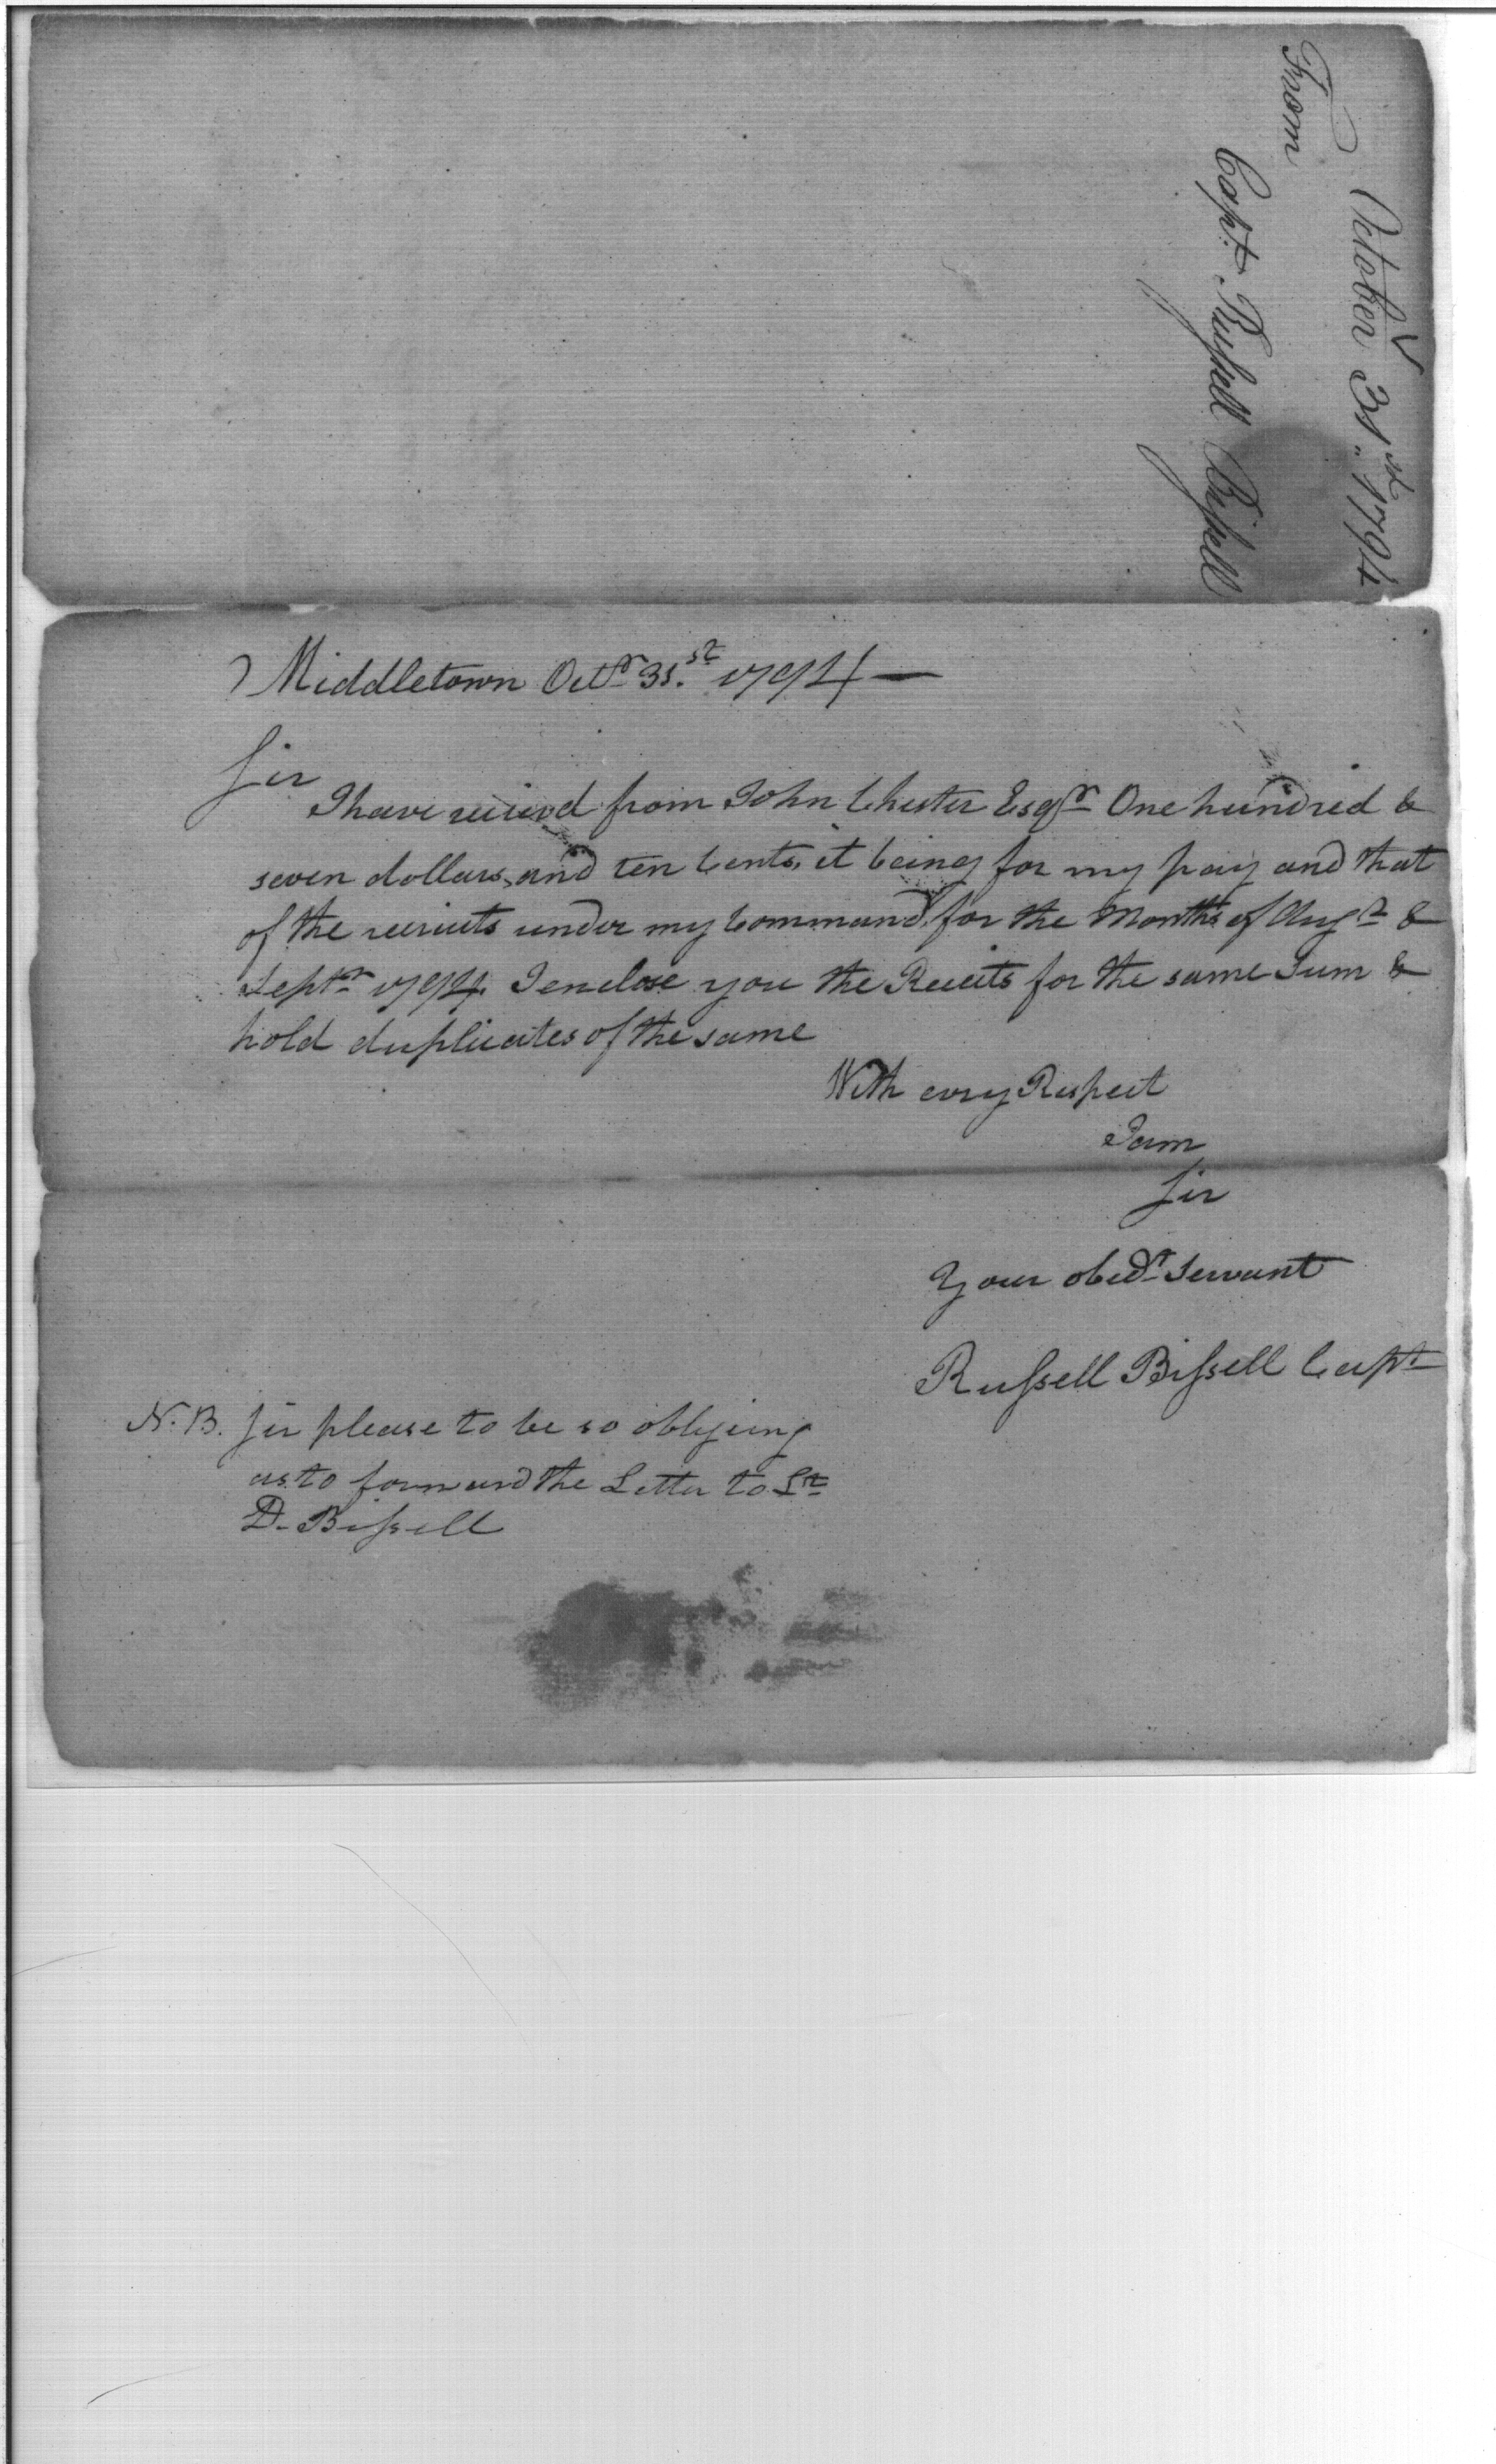 October 31st 1794
From
Capt. Russell Bissell
Middletown Octr 31.st 1794 —
Sir
I have recievd from John Chester Esqr One hundred &
seven dollars, and ten Cents, it being for my pay and that
of the recruits under my Command, for the Months of Augt &
Septr 1794. I enclose you the Reciets for the same Sum &
hold duplicates of the same
With evry Respect
I am
Sir
Your obedt Servant
Russell Bissell Capt
N.B. Sir please to be so obligeing
as to forward the Letter to Lt
D. Bissell